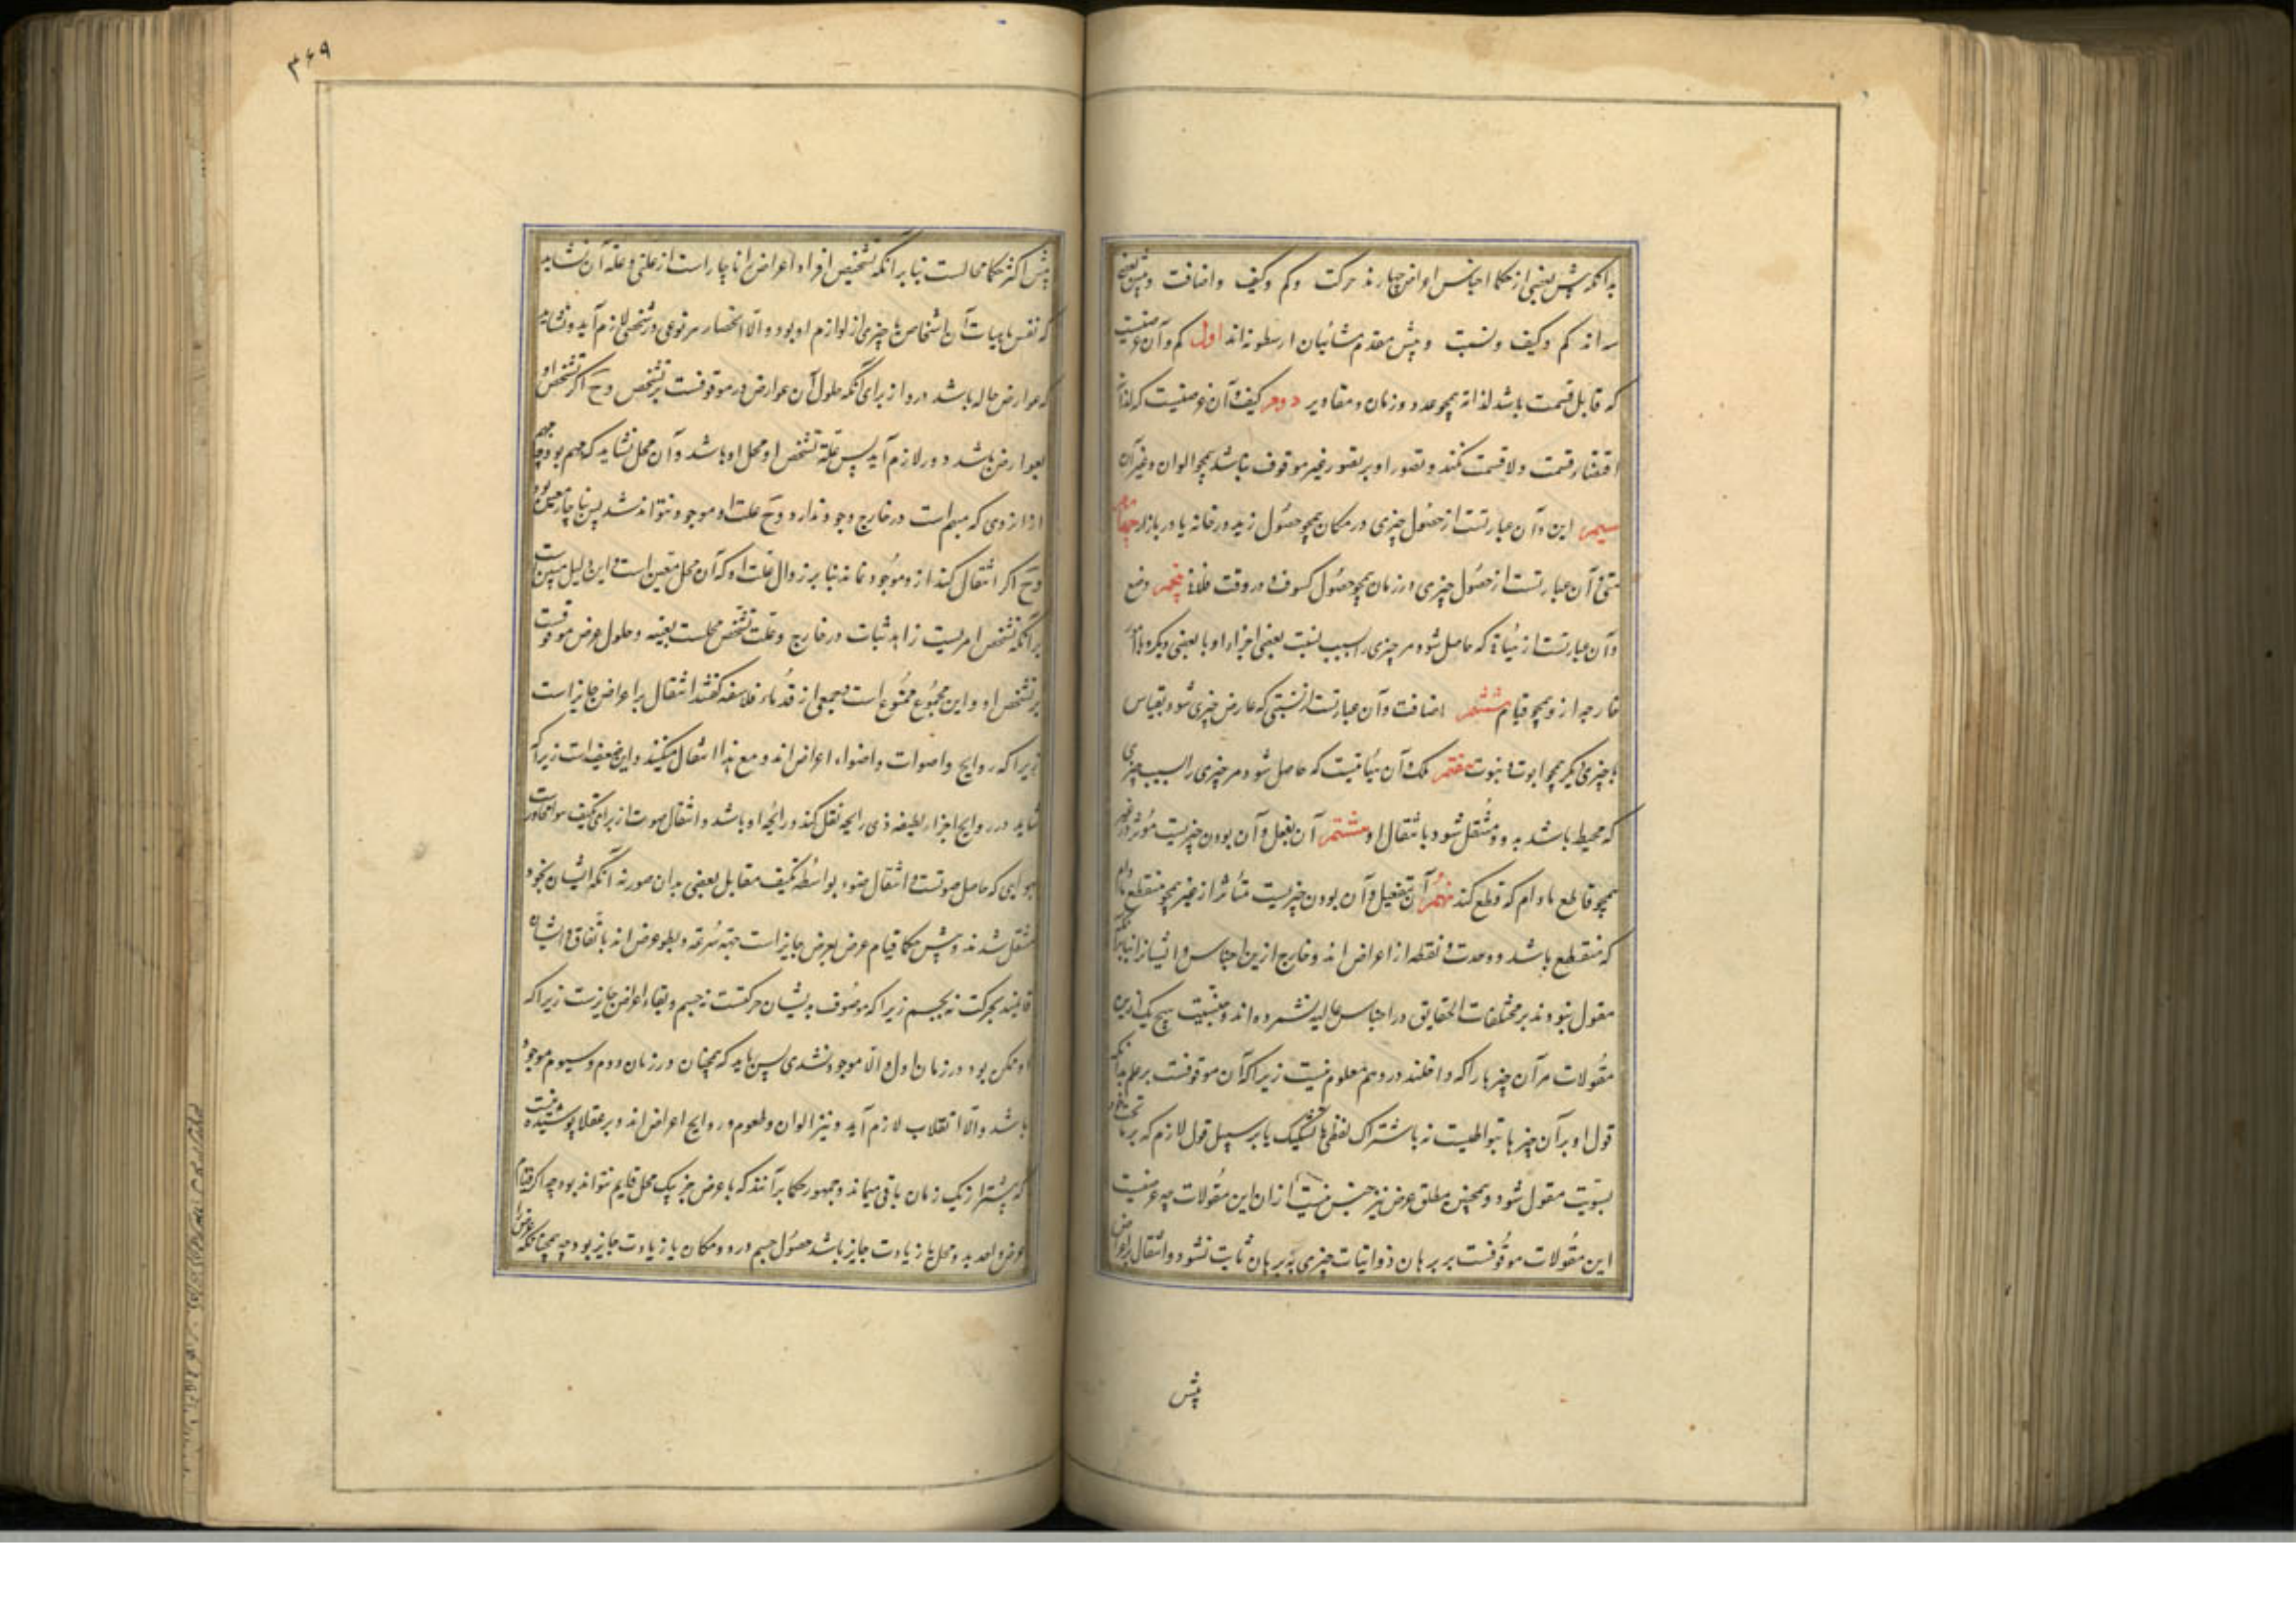 بدانکه پیش بعضی از حکما اجناس اعراض چهارند حرکت و کم و کیف و اضافت و پیش بعضی
سه اند کم و کیف و نسبت و پیش مقدم مشائیان ارسطو نه اند اول کم و آن عرضیست
که قابل قسمت باشد لذاته همچو عدد و زمان و مقادیر دوم کیف و آن عرضیست که لذاته
اقتضاء قسمت و لا قسمت نکند و تصور او بر تصور غیر موقوف نباشد همچو الوان و غیر آن
سیم این و آن عبارتست از حصول چیزی در مکان همچو حصول زید در خانه یا در بازار چهارم
متی و آن عبارتست از حصول چیزی در زمان همچو حصول کسوف در وقت پنجم وضع
و آن عبارتست از هیأتی که حاصل شود مر چیزی را بسبب نسبت بعضی اجزاء او با بعضی دیگر و با امور
خارجه از و همچو قیام ششم اضافت و آن عبارتست از نسبتی که عارض چیزی شود بقیاس
با چیزی دیگر همچو ابوت و بنوت هفتم ملک و آن هیأتیست که حاصل شود مر چیزی را بسبب چیزی
که محیط باشد به و و منتقل شود بانتقال او هشتم ان یفعل و آن بودن چیزیست مؤثر در غیر
همچو قاطع مادام که قطع کند نهم ان ینفعل و آن بودن چیزیست متأثر از غیر همچو منقطع مادام
که منقطع باشد و وحدت و نقطه از اعراض اند و خارج ازین اجناس و ایشانرا بنابر آنکه
مقول نبودند بر مختلفات الحقایق در اجناس عالیه نشمرده اند و جنسیت هیچ یک ازین
مقولات مر آن چیزها را که داخلند در وهم معلوم نیست زیرا که آن موقوفست بر علم بدانکه
قول او بر آن چیزها بتواطیست نه باشتراک لفظی یا تشکیک یا بر سبیل قول لازم که بر ماتحت خود
بسویت مقول شود و همچنین مطلق عرض نیز جنس نیست ازان این مقولات چه عرضیت
این مقولات موقوفست بر برهان و ذاتیات چیزی به برهان ثابت نشود و انتقال بر اعراض
پیش
۳۶۹
پیش اکثر حکما محالست بنابر آنکه تشخیص افراد اعراض را ناچار است از علتی و علة آن نشاید
که نفس ماهیات آن اشخاص یا چیزی از لوازم او بود و الا انحصار هر نوعی در شخصی لازم آید و نشاید
که عوارض حاله باشد درو از برای آنکه حلول آن عوارض درو موقوفست بر تشخص و ح اگر تشخص او
بعوارض باشد دور لازم آید پس علة تشخص او محل او باشد و آن محل نشاید که مبهم بود چه مبهم
از آن روی که مبهم است در خارج وجود ندارد و ح علت او موجود نتواند شد پس ناچار معین بود
و ح اگر انتقال کند ازو موجود نماند بنابر زوال علت او که آن محل معین است و این دلیل مبنی است
بر آنکه تشخص امریست زاید ثبات در خارج و علت تشخص محلست بعینه و حلول عرض موقوفست
بر تشخص او و این مجموع ممنوع است و جمعی از قدماء فلاسفه گفتند انتقال بر اعراض جایز است
زیرا که روایح و اصوات و اضواء اعراض اند و مع هذا انتقال میکنند و این ضعیف است زیرا که
شاید در روایح اجزاء لطیفه ذی رایحه نقل کند و رایحه او باشد و انتقال صوت از برای تکیف هواء مجاورست
بهوایی که حامل صوتست و انتقال ضوء بواسطه تکیف مقابل بعضی بدان صور نه آنکه ایشان بخود
منتقل شدند و پیش حکما قیام عرض بعرض جایز است چه سرعة و بطو عرض اند باتفاق و ایشان
قایمند بحرکت نه بجسم زیرا که موصوف بدیشان حرکتست نه جسم و بقاء اعراض جایزست زیرا که
او ممکن بود در زمان اول و الا موجود نشدی پس باید که همچنان در زمان دوم و سیوم موجود
باشد و الا انقلاب لازم آید و نیز الوان و طعوم و روایح اعراض اند و بر عقلا پوشیده نیست
که بیشتر از یک زمان باقی میماند و جمهور حکما برآنند که با عرض جز بیک محل قایم نتواند بود چه اگر قیام
عرض واحد به دو محل یا زیادت جایز باشد حصول جسم در دو مکان یا زیادت جایز بود چه همچنانکه عرض